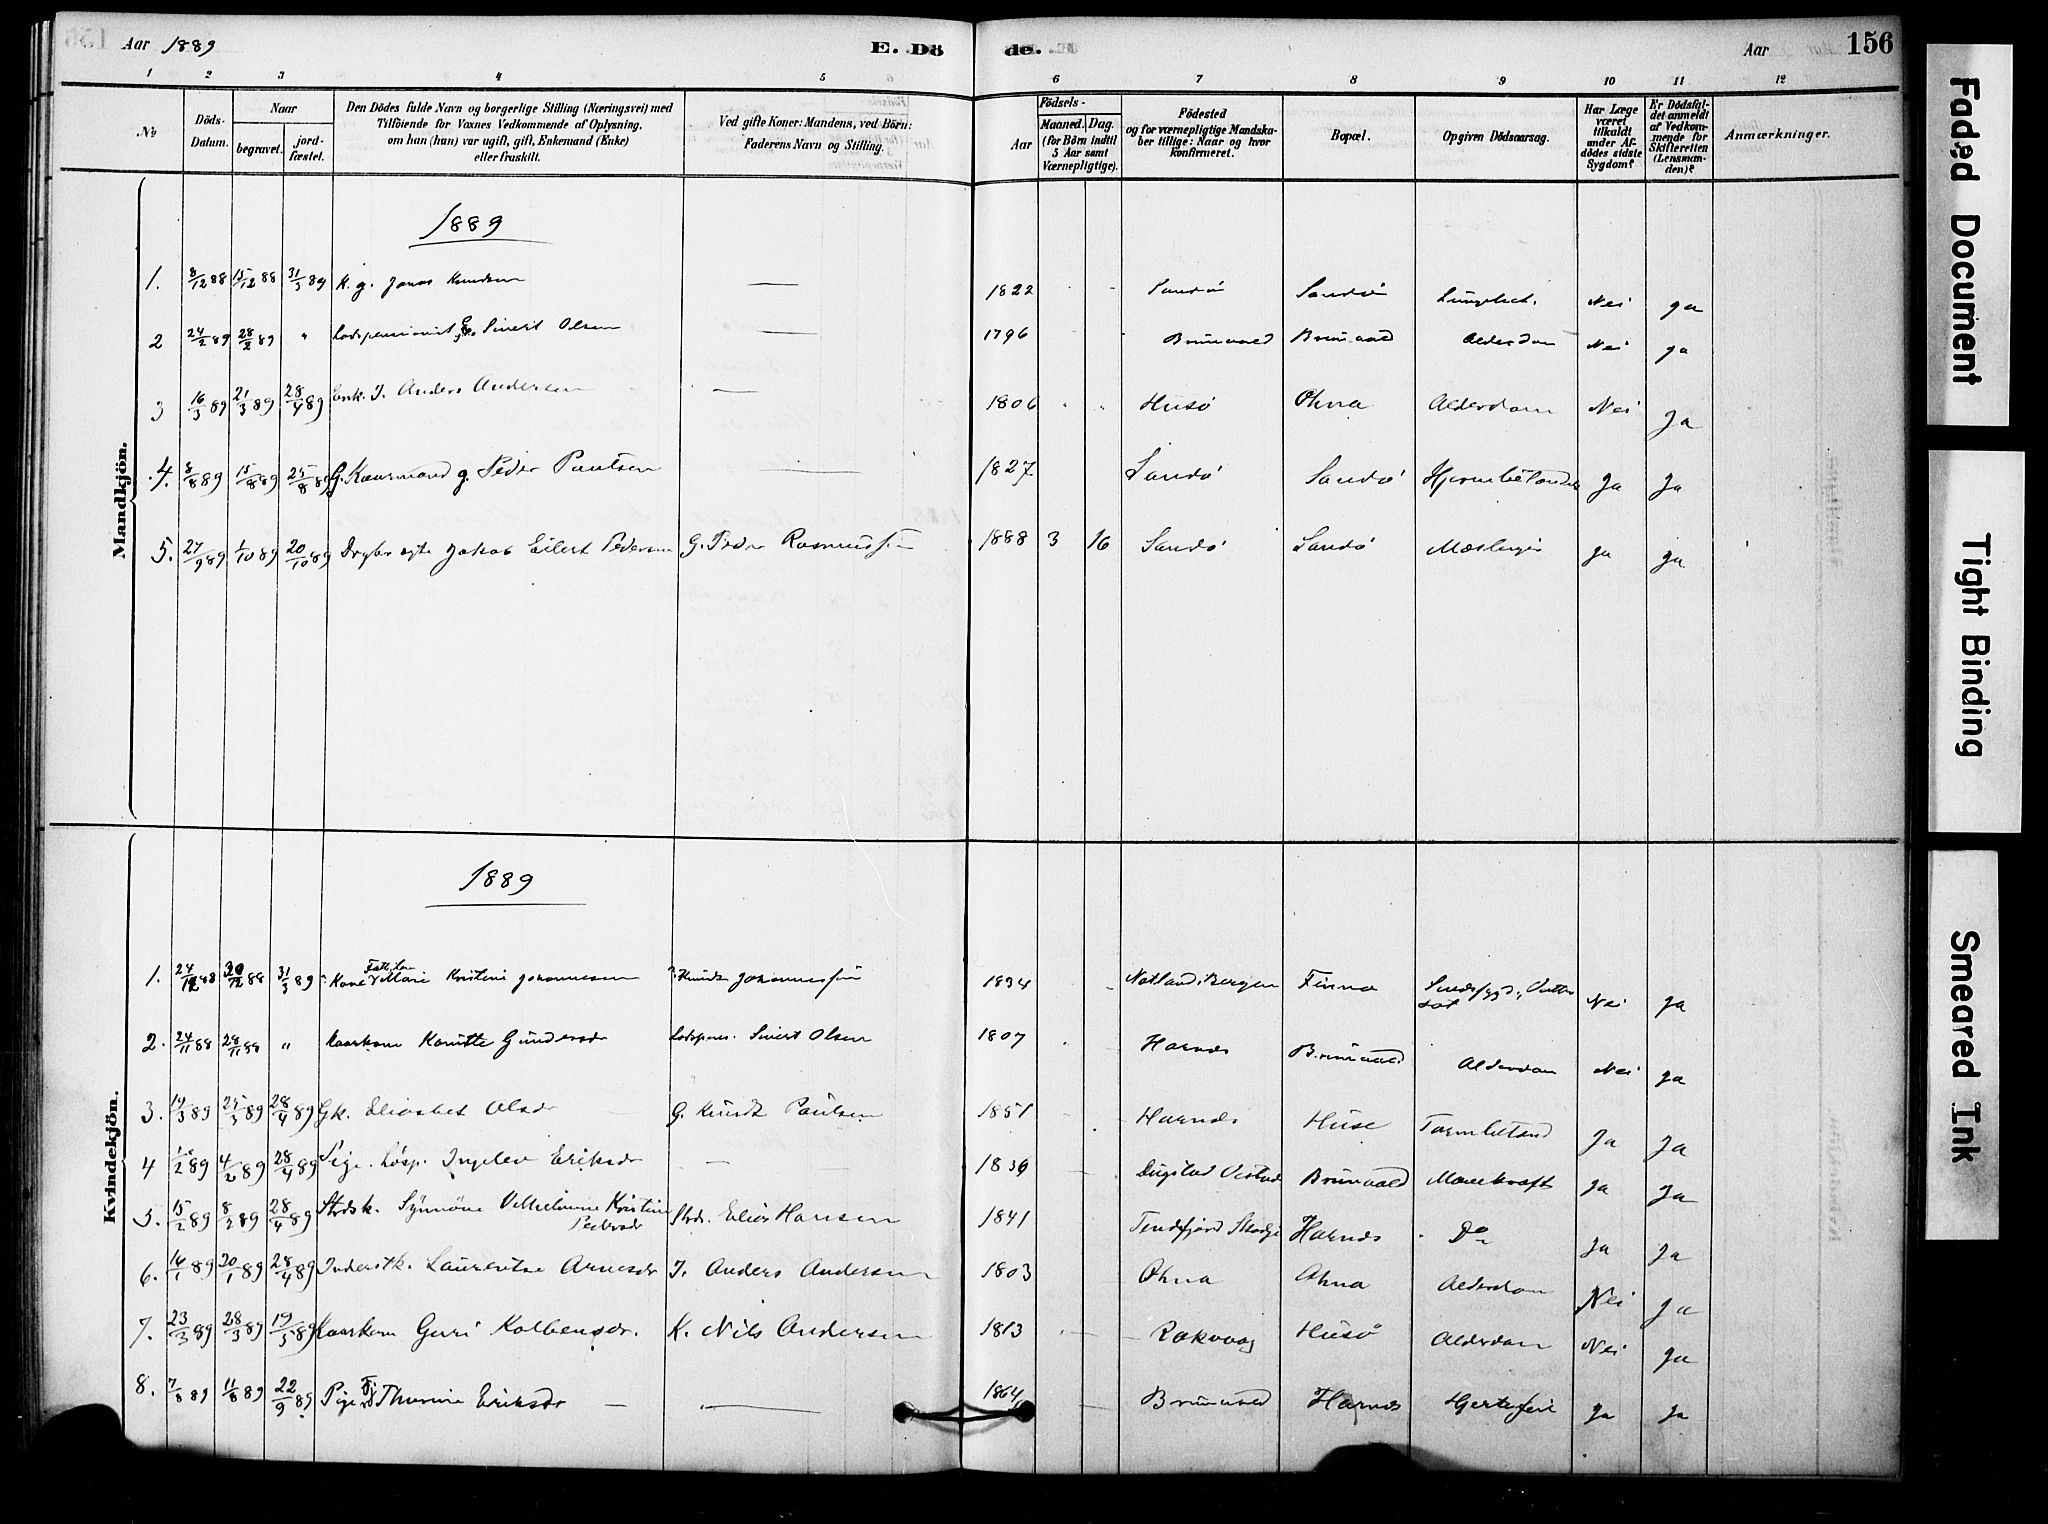 Aar 1889 E. Dö de. Aar 156
1 2 3 4 5 6 7 8 9 10 11 12
No
Döds-Datum.
Naar
begravet. jordfæstet.
Den Dödes fulde Navn og borgerlige Stilling (Næringsvei) med
Tilföiende for Voxnes Vedkommende af Oplysning,
om han (hun) var ugift, gift, Enkemand (Enke)
eller fraskilt.
Ved gifte Koner: Mandens, ved Börn:
Faderens Navn og Stilling.
Födsels-
Aar
Maaned. Dag.
(for Börn indtil
5 Aar samt
Værnepligtige).
Födested
og for værnepligtige Mandska-
ber tillige: Naar og hvor
konfirmeret.
Bopæl.
Opgiven Dödsaarsag.
Har Læge
været
tilkaldt
under Af-
dödes sidste
Sygdom?
Er Dödsfal-
det anmeldt
af Vedkom-
mende for
Skifteretten
(Lensman-
den)?
Anmærkninger.
Mandkjön.
1889
1. 8/12 88 15/12 88 31/3 89 K. g. Jonas Knudsen — 1822 Sandö Sandö Nei Ja
2 24/2 89 28/2 89 " Lodspensionist Sivert Olsen — 1796 Brunvold Brunvold Alderdom Nei Ja
3 16/3 89 21/3 89 28/4 89 Enk. I. Anders Andersen — 1806 Husö Ohna Alderdom Nei Ja
4. 8/8 89 15/8 89 25/8 89 G. Kaarmand g. Peder Paulsen — 1827 Sandö Sandö Ja Ja
5. 27/9 89 1/10 89 20/10 89 ægte Jakob Eilert Pedersen G. Peder Rasmussen 1888 3 16 Sandö Sandö Mæslinger Ja Ja
Kvindekjön.
1889
1. 24/12 88 30/12 88 31/3 89 Kone Marie Kristine Johannesen Knudt Johannessen 1834 Bergen Finnø Nei Ja
2. 24/11 88 28/11 88 " Kaarkone Karitte Gundersdr Lodspens. Sivert Olsen 1807 Harnes Brunvold Alderdom Nei Ja
3. 19/3 89 25/3 89 28/4 89 Gk. Eliasbet Olsdr G. Knudt Paulsen 1851 Harnes Huse Ja Ja
4 2 89 4/2 89 28/4 89 Pige. Løsp. Ingelev Eriksdr — 1836 Brunvold Ja Ja
5. 15/2 89 8/2 89 28/4 89 Strdsk. Synnöve Vilhelmine Kristine
Pedersdr Strds. Elias Hansen 1841 Skodje Harnes Do Ja Ja
6. 16/1 89 20/1 89 28/4 89 Inderstk. Laurentse Arnesdr I. Anders Andersen 1803 Ohna Ohna Alderdom Nei Ja
7. 23/3 89 28/3 89 19/5 89 Kaarkone Guri Kolbensdr. K. Nils Andersen 1813 Rakvaag Husö Alderdom Nei Ja
8. 7/8 89 11/8 89 22/9 89 Pige Thurine Eriksdr — 1864 Brunvold Harnes Ja Ja
Faded Document
Tight Binding
Smeared Ink